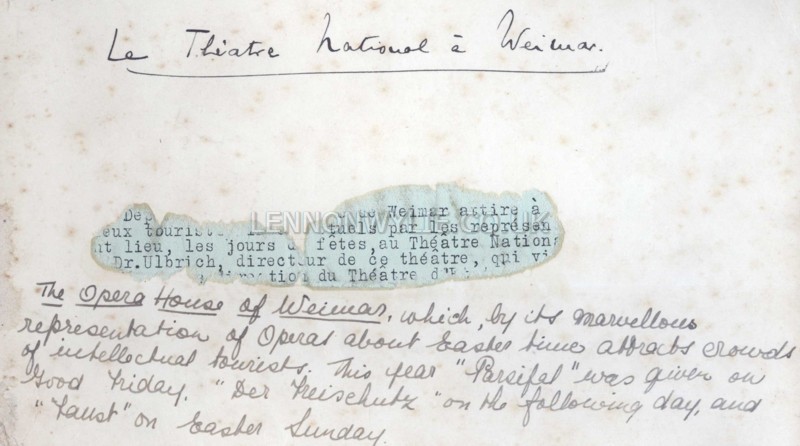 Le Théatre National à Weimar.
LENNONWYLIE.CO.UK
Weimar attire à
eux tourist par les représen
nt lieu, les jours de fêtes, au Théâtre Nationa
Dr.Ulbrich, directeur de ce théâtre, qui vi
du Théâtre d'
The Opera House of Weimar, which, by its marvellous
representation of Operas about Easter time attracts crowds
of intellectual tourists. This year "Parsifal" was given on
Good Friday. "Der Freischutz" on the following day, and
"Faust" on Easter Sunday.